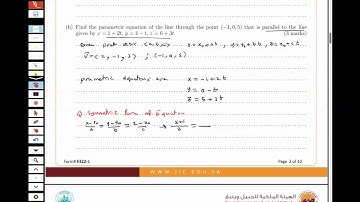 (b) Find the parametric equation of the line through the point (−1, 0, 5) that is parallel to the line
given by x = 1 + 2t, y = 4 − t, z = 6 + 3t. (3 marks)
x = x₀ + at y = y₀ + bt z = z₀ + ct
V = < 2, -1, 3 > ; (-1, 0, 5)
parametric equations are x = -1+2t
y = 0-t
z = 5+3t
Q. Symmetric form of Equation
x-x₀/a = y-y₀/b = z-z₀/c → x+1/2 =
Form# F322-1 Page 2 of 10
WWW.JIC.EDU.SA
الهيئة الملكية للجبيل وينبع